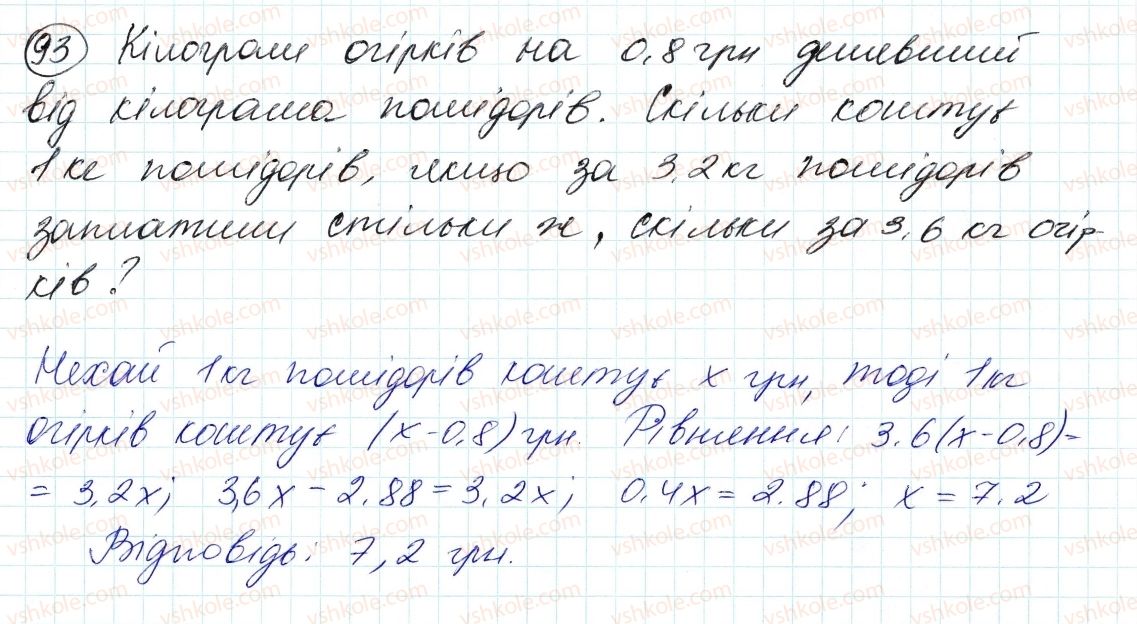 93 Кілограм огірків на 0,8 грн дешевший
від кілограма помідорів. Скільки коштує
1 кг помідорів, якщо за 3,2 кг помідорів
заплатили стільки ж, скільки за 3,6 кг огір-
ків?
Нехай 1 кг помідорів коштує x грн, тоді 1 кг
огірків коштує (x-0,8) грн. Рівняння: 3.6(x-0,8)=
= 3,2x; 3,6x - 2.88 = 3,2x; 0.4x = 2.88; x = 7.2
Відповідь: 7,2 грн.